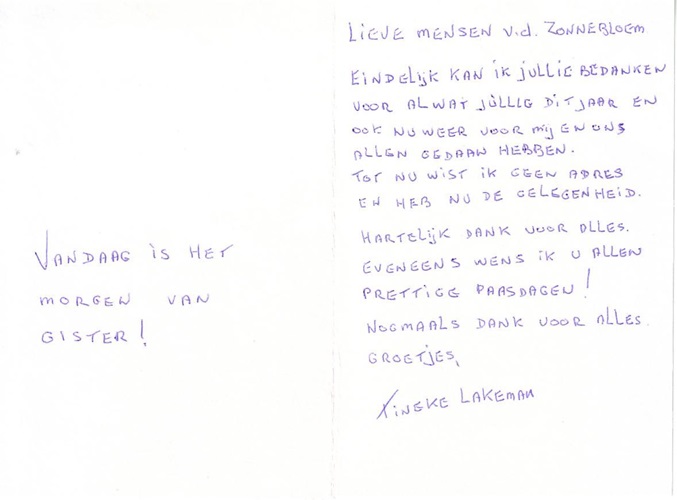 VANDAAG IS HET
MORGEN VAN
GISTER!
LIEVE MENSEN v.d. ZONNEBLOEM
EINDELIJK KAN IK JULLIE BEDANKEN
VOOR AL WAT JULLIE DIT JAAR EN
OOK NU WEER VOOR MIJ EN ONS
ALLEN GEDAAN HEBBEN.
TOT NU WIST IK GEEN ADRES
EN HEB NU DE GELEGENHEID.
HARTELIJK DANK VOOR ALLES.
EVENEENS WENS IK U ALLEN
PRETTIGE PAASDAGEN!
NOGMAALS DANK VOOR ALLES.
GROETJES,
TINEKE LAKEMAN